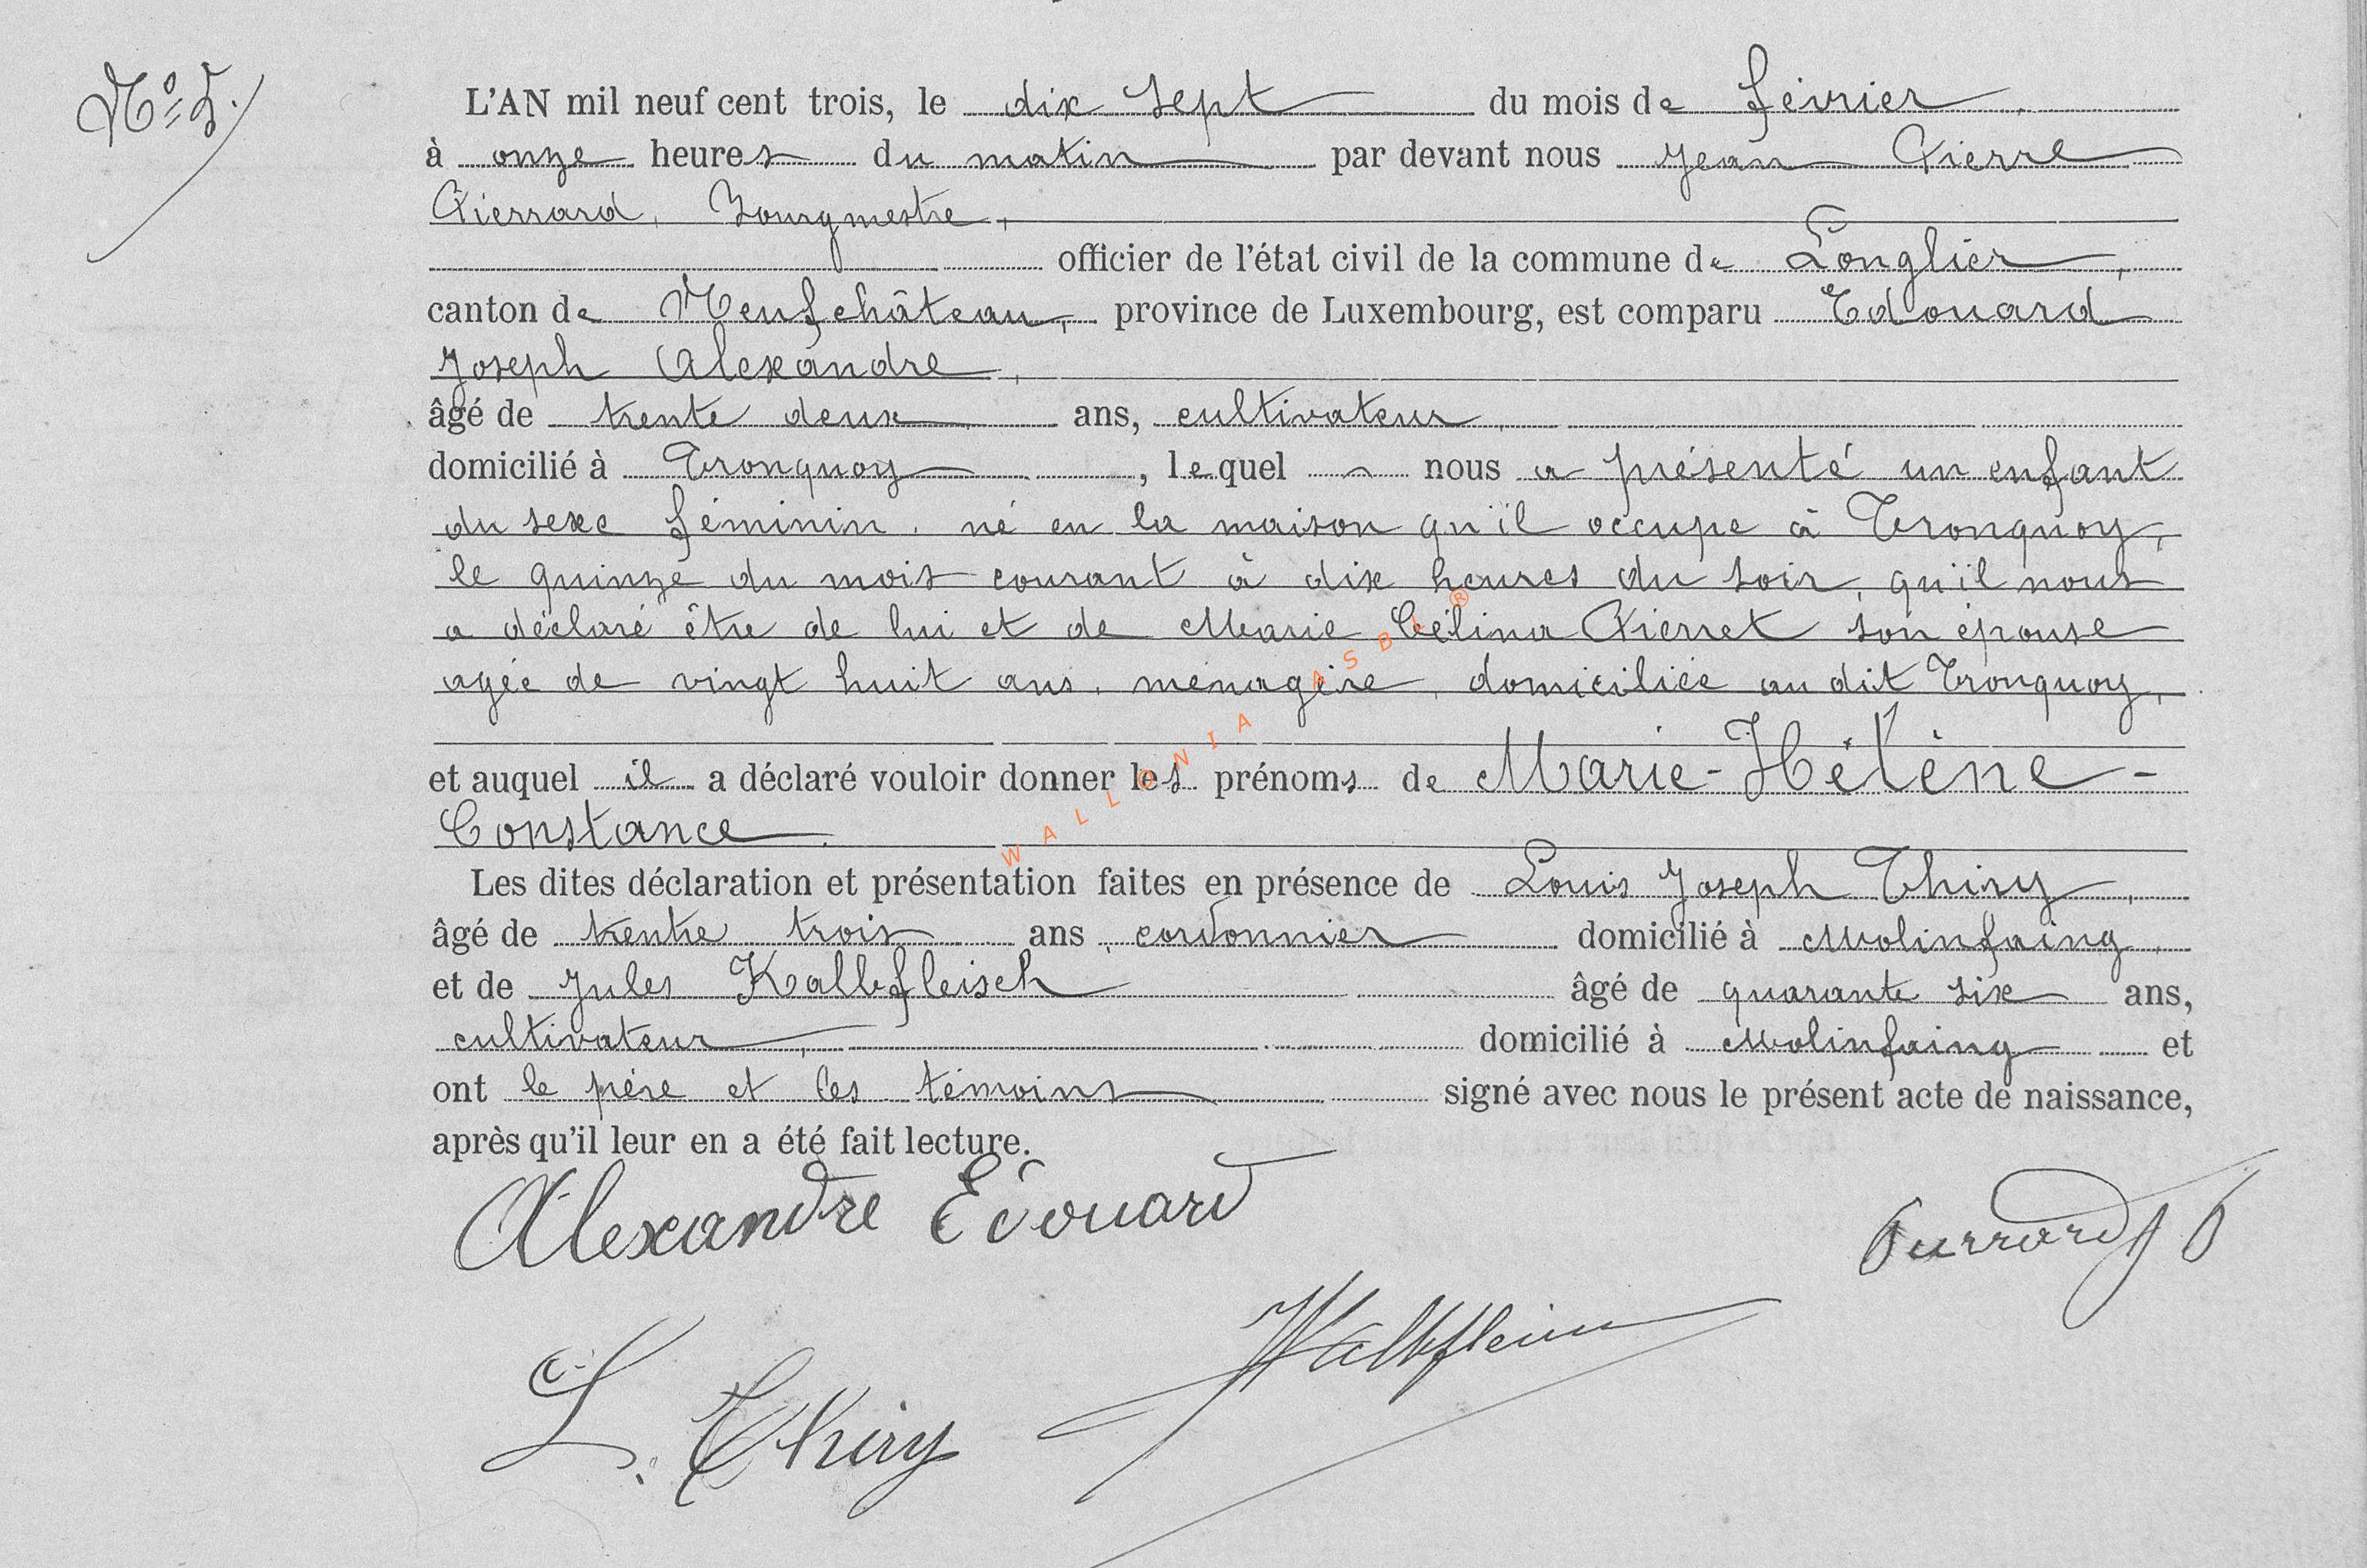 N° 5.
L'AN mil neuf cent trois, le dix sept du mois de février
à onze heures du matin par devant nous Jean Pierre
Pierrard, Bourgmestre,
officier de l'état civil de la commune de Longlier,
canton de Neufchâteau, province de Luxembourg, est comparu Edouard
Joseph Alexandre,
âgé de trente deux ans, cultivateur,
domicilié à Tronquoy, lequel nous a présenté un enfant
du sexe féminin, né en la maison qu'il occupe à Tronquoy,
le quinze du mois courant à dix heures du soir, qu'il nous
a déclaré être de lui et de Marie Célina Pierret son épouse
agée de vingt huit ans, ménagère, domiciliée au dit Tronquoy,
et auquel il a déclaré vouloir donner les prénoms de Marie-Hélène-
Constance.
Les dites déclaration et présentation faites en présence de Louis Joseph Thiry,
âgé de trente trois ans, cordonnier domicilié à Molinfaing,
et de Jules Kalbfleisch âgé de quarante six ans,
cultivateur, domicilié à Molinfaing et
ont le père et les témoins signé avec nous le présent acte de naissance,
après qu'il leur en a été fait lecture.
Alexandre Edouard
Pierrard J P
Kalbfleisch
L. Thiry
WALLONIA ASBL ®